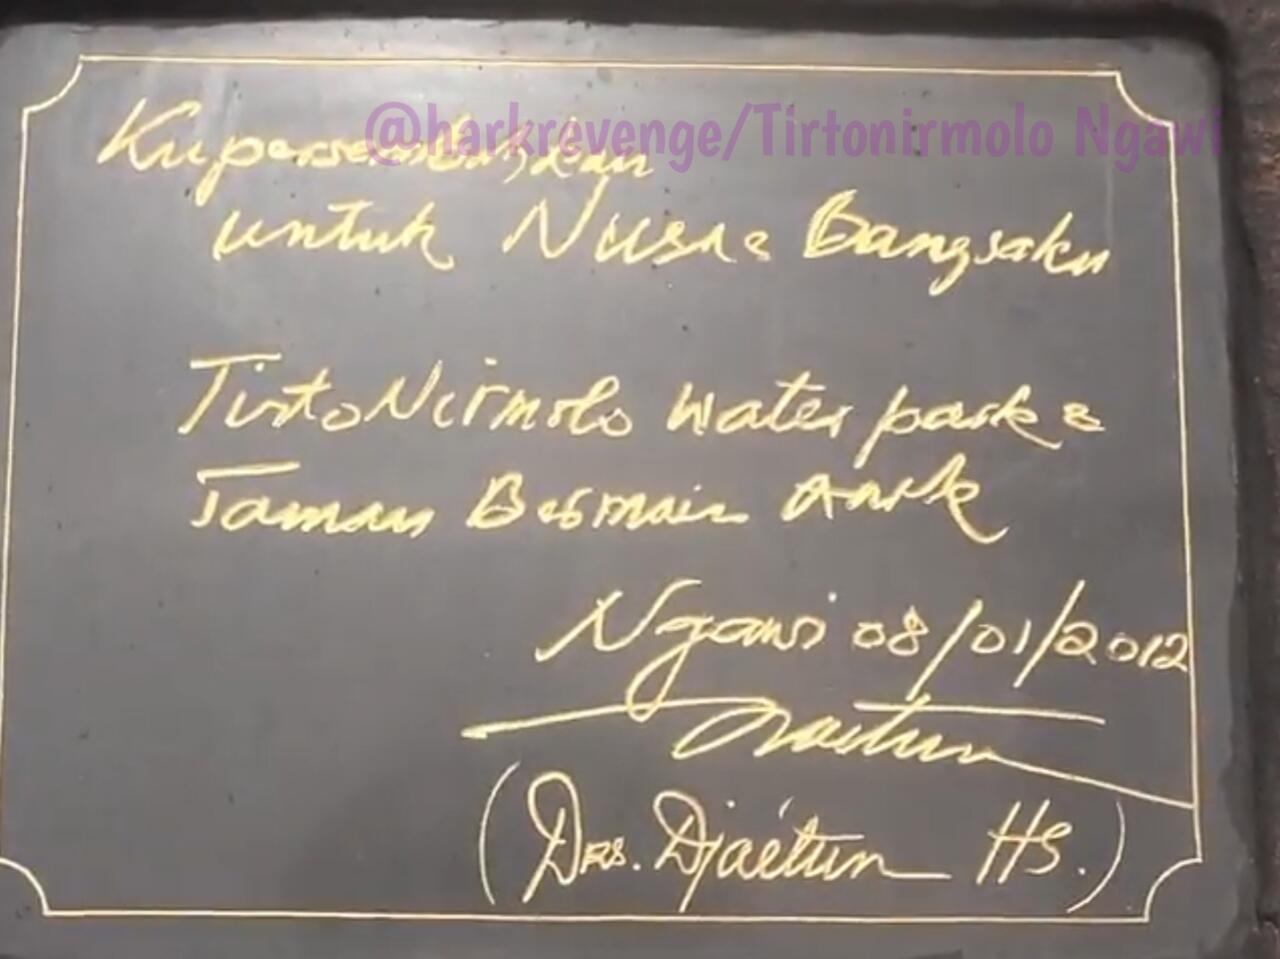 @harkrevenge/Tirtonirmolo Ngawi
Kupersembahkan
untuk Nusa & Bangsaku
TirtoNirmolo Water park &
Taman Bermain Anak
Ngawi 08/01/2012
(Drs. Djaétun HS.)